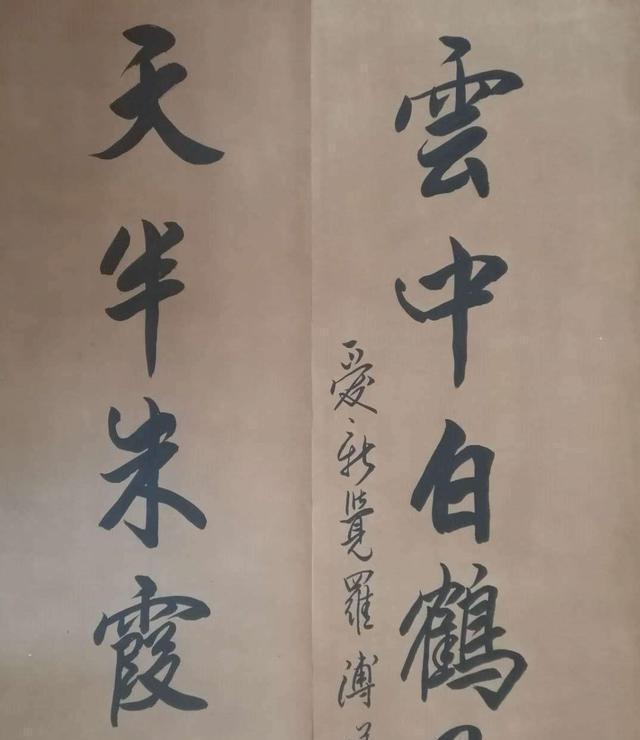 雲中白鶴
愛新覺羅溥
天半朱霞